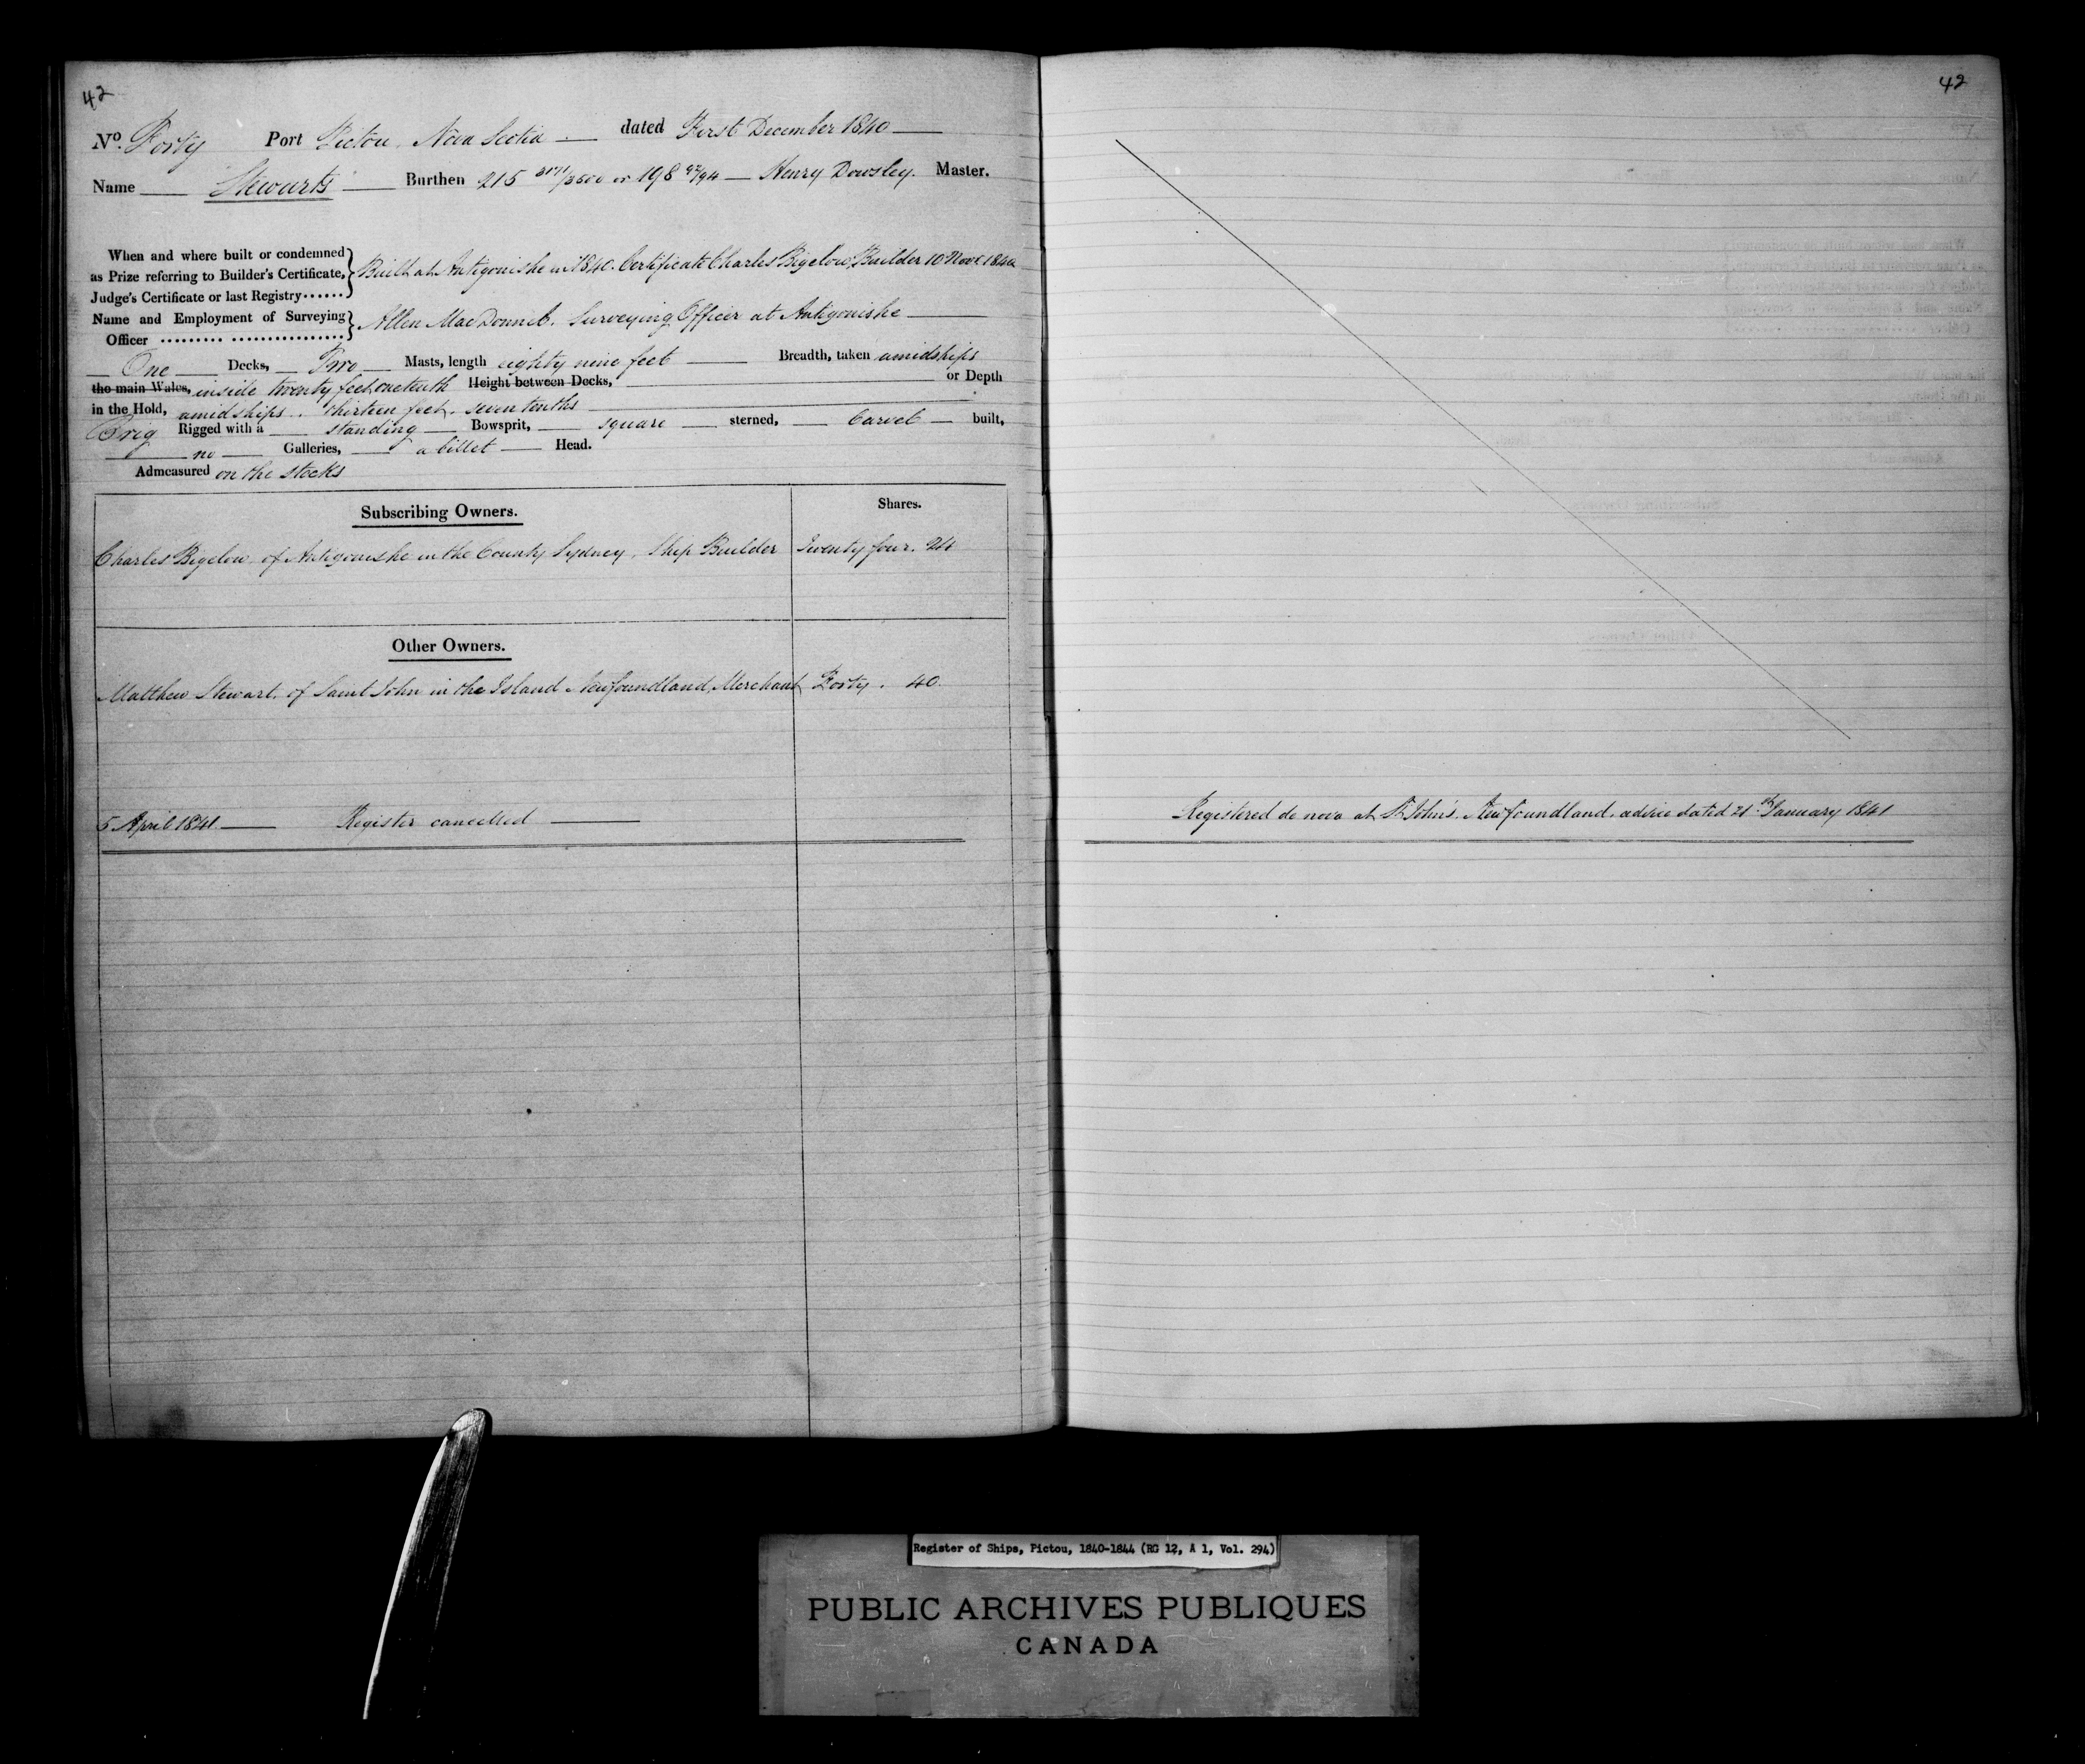 42
No. Forty Port Pictou, Nova Scotia dated First December 1840
Name Stewarts Burthen 215 3171/3500 or 198 92/94 Henry Dowsley. Master.
When and where built or condemned
as Prize referring to Builder's Certificate,
Judge's Certificate or last Registry......
Built at Antigonishe in 1840. Certificate Charles Bigelow, Builder 10 Novr. 1840
Name and Employment of Surveying
Officer ......... ................
Allen MacDonnel. Surveying Officer at Antigonishe
One Decks, Two Masts, length eighty nine feet Breadth, taken amidships
the main Wales, inside twenty feet one tenth Height between Decks, or Depth
in the Hold, amidships. thirteen feet. seven tenths
Brig Rigged with a standing Bowsprit, square sterned, Carvel built,
no Galleries, a billet Head.
Admeasured on the stocks
Subscribing Owners. Shares.
Charles Bigelow of Antigonishe in the County Sydney, Ship Builder Twenty four. 24
Other Owners.
Matthew Stewart. of Saint John in the Island Newfoundland, Merchant Forty. 40.
5 April 1841. Register cancelled
42
Registered de novo at St. John's. Newfoundland. advice dated 21st January 1841
Register of Ships, Pictou, 1840-1844 (RG 12, A 1, Vol. 294)
PUBLIC ARCHIVES PUBLIQUES
CANADA